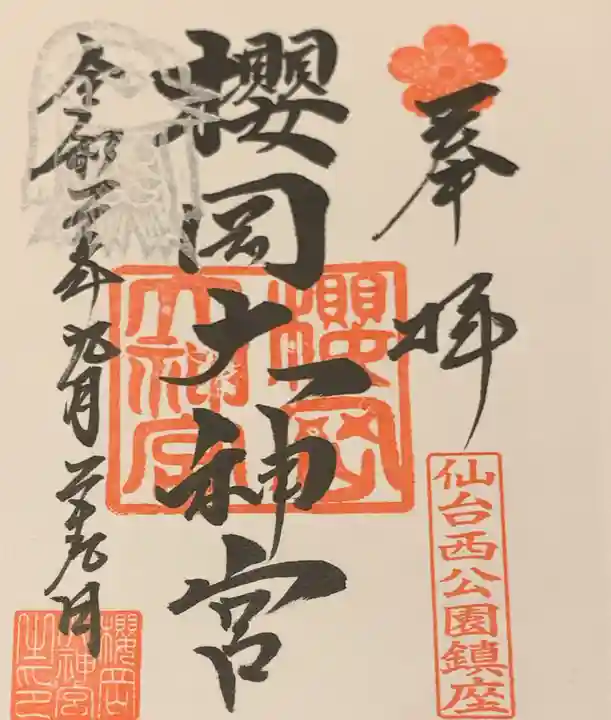 奉拝
仙台西公園鎮座
櫻岡大神宮
櫻岡大神宮
令和二年九月二十九日
櫻岡大神宮之印